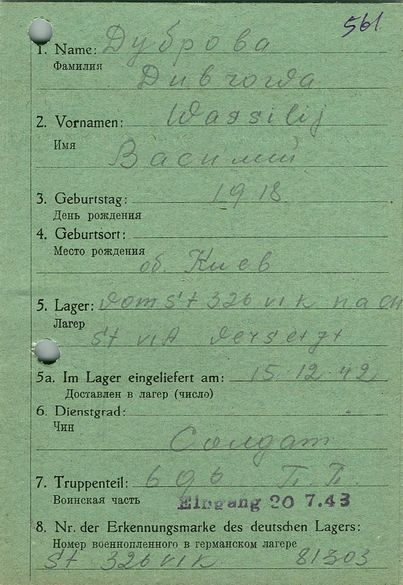 561
1. Name: Дуброва
Фамилия
2. Vornamen: Wassilij
Имя
Василий
3. Geburtstag: 1918
День рождения
4. Geburtsort:
Место рождения
об. Киев
5. Lager: vom St 326 VI K nach
Лагер
St VI A versetzt
5a. Im Lager eingeliefert am: 15.12.42
Доставлен в лагер (число)
6. Dienstgrad:
Чин
Солдат
7. Truppenteil: 696 П.П.
Воинская часть
Eingang 20 7.43
8. Nr. der Erkennungsmarke des deutschen Lagers:
Номер военнопленного в германском лагере
St 326 VI K 81303